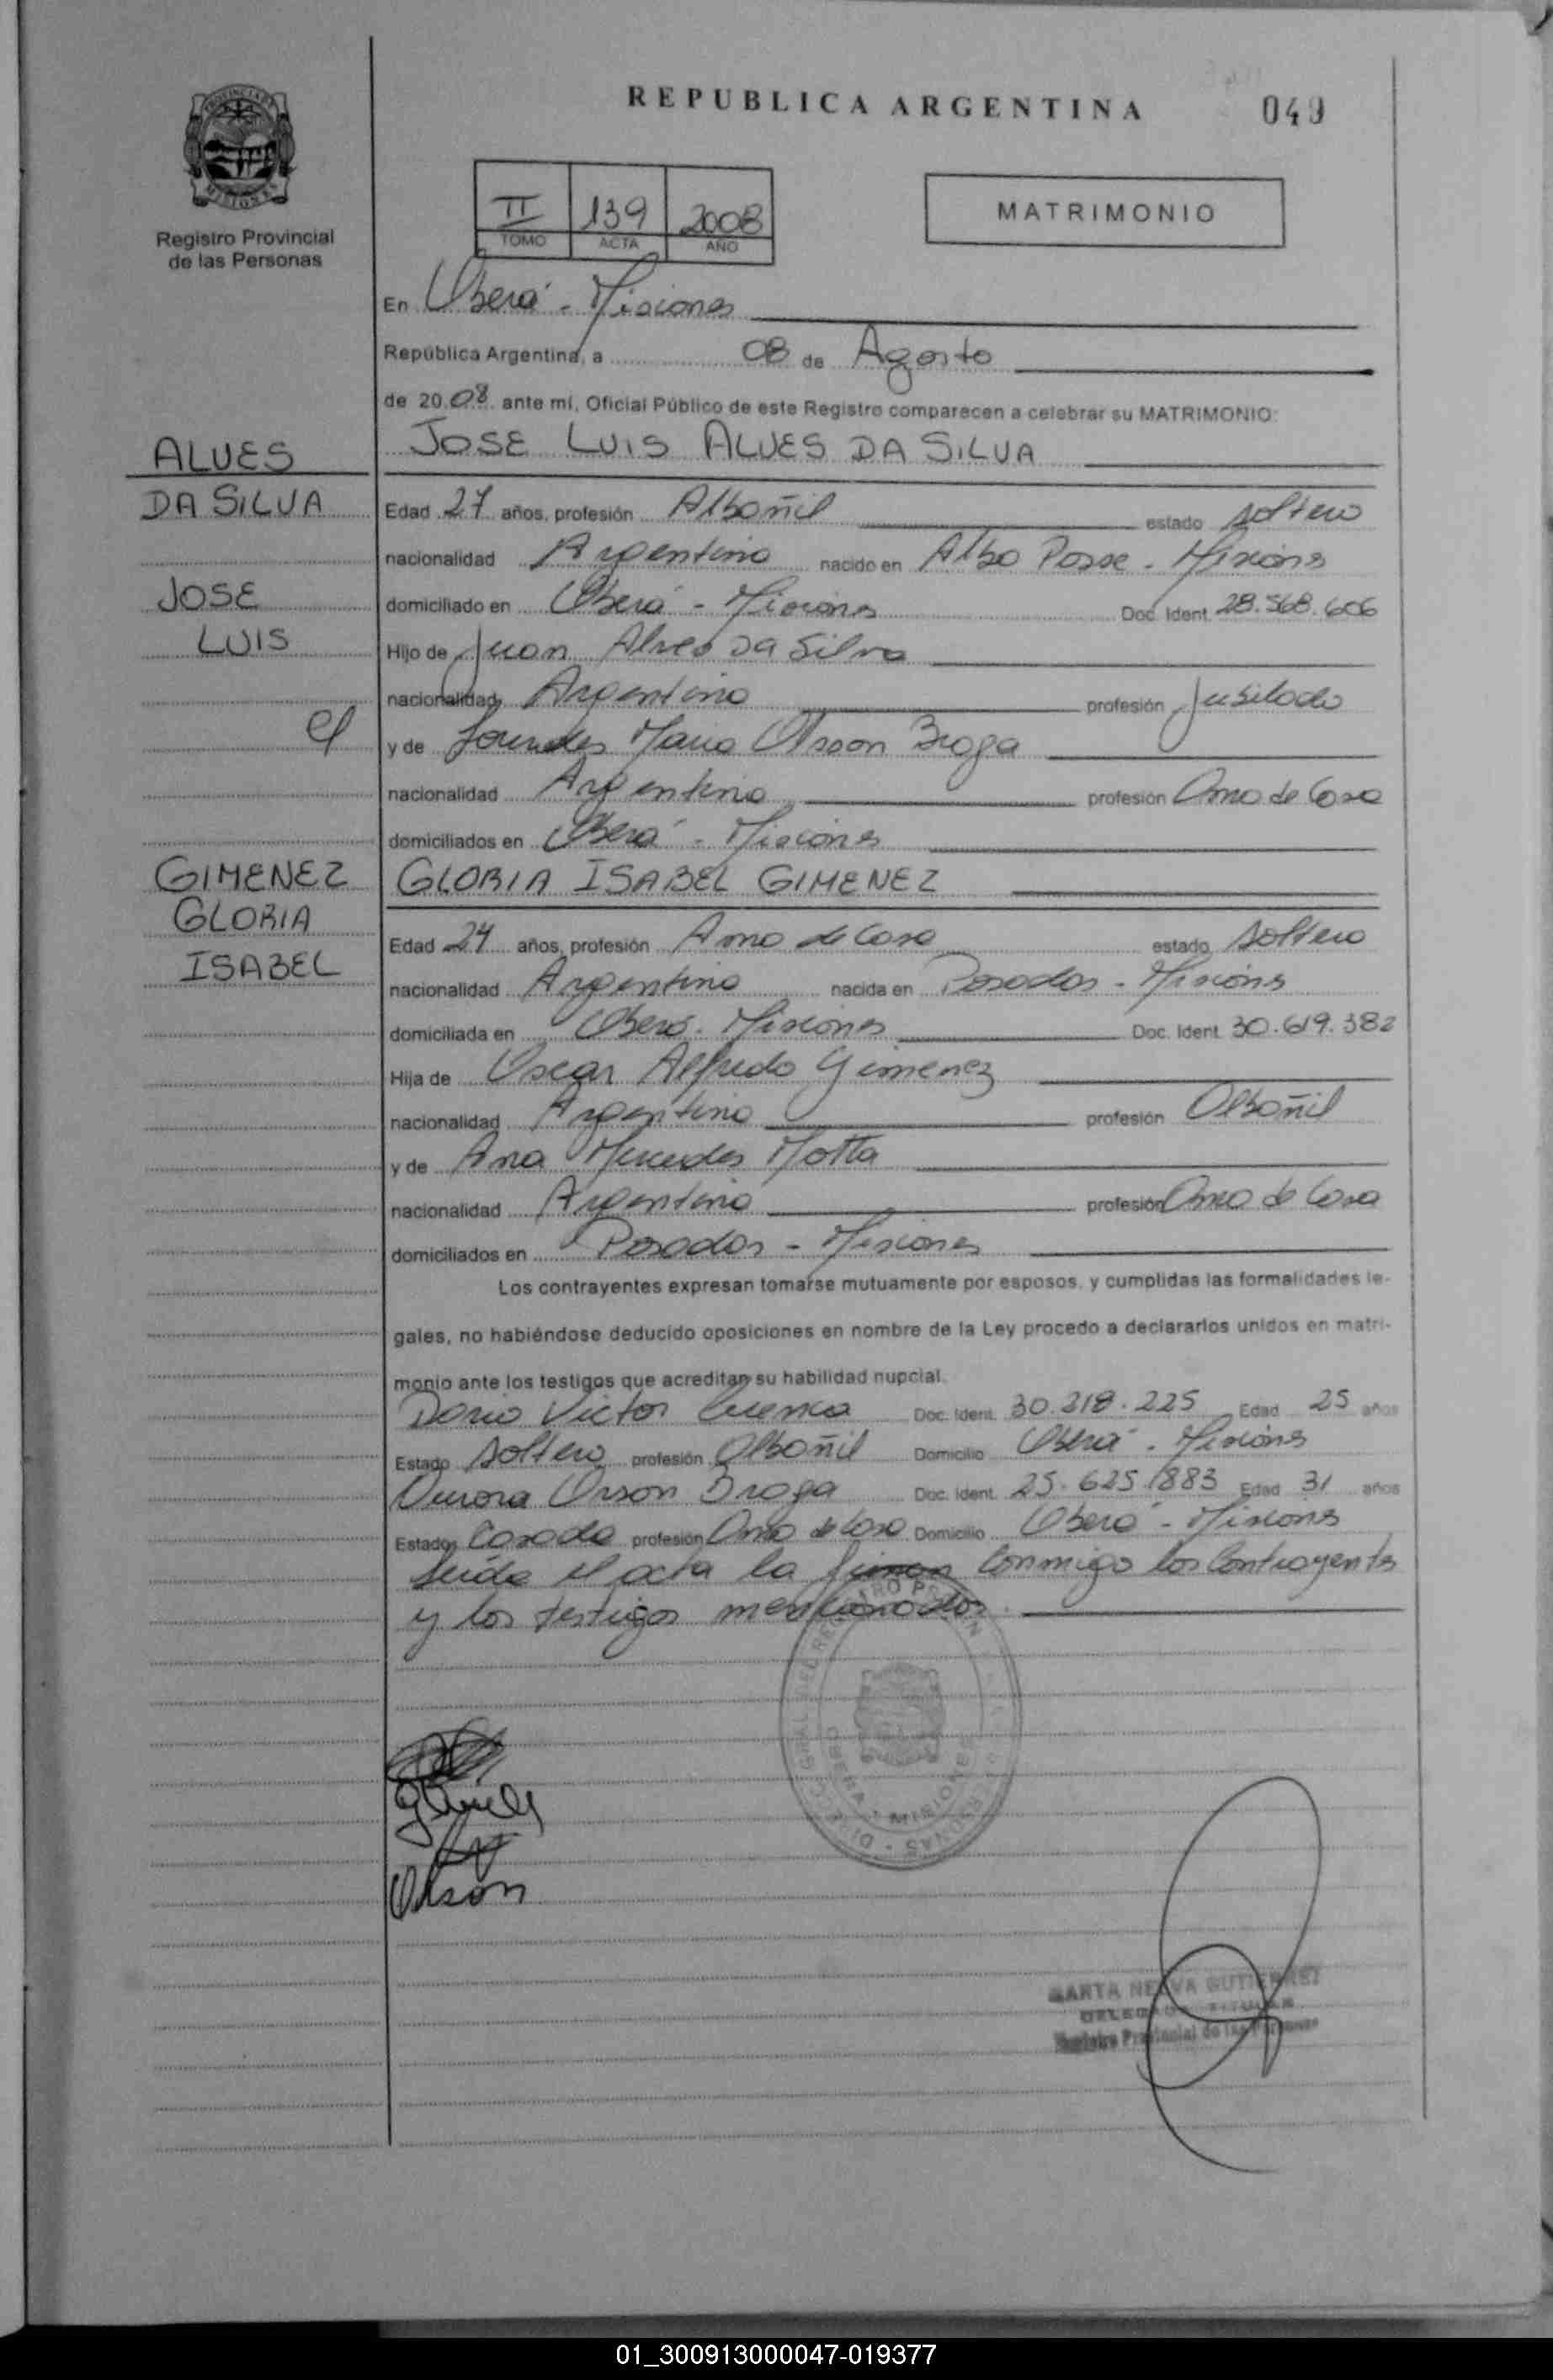 REPUBLICA ARGENTINA
049
PROVINCIA DE
MISIONES
Registro Provincial
de las Personas
II 139 2008
TOMO ACTA AÑO
MATRIMONIO
En Oberá - Misiones
República Argentina, a 08 de Agosto
de 2008 ante mí, Oficial Público de este Registro comparecen a celebrar su MATRIMONIO:
ALVES
DA SILVA
JOSE
LUIS
y
GIMENEZ
GLORIA
ISABEL
JOSE LUIS ALVES DA SILVA
Edad 27 años, profesión Albañil estado soltero
nacionalidad Argentina nacido en Alba Posse - Misiones
domiciliado en Oberá - Misiones Doc. Ident. 28.568.606
Hijo de Juan Alves Da Silva
nacionalidad Argentina profesión Jubilado
y de Lourdes Maria Olsson Braga
nacionalidad Argentina profesión Ama de Casa
domiciliados en Oberá - Misiones
GLORIA ISABEL GIMENEZ
Edad 24 años, profesión Ama de Casa estado soltera
nacionalidad Argentina nacida en Posadas - Misiones
domiciliada en Oberá - Misiones Doc. Ident. 30.619.382
Hija de Oscar Alfredo Gimenez
nacionalidad Argentina profesión Albañil
y de Ana Mercedes Motta
nacionalidad Argentina profesión Ama de Casa
domiciliados en Posadas - Misiones
Los contrayentes expresan tomarse mutuamente por esposos, y cumplidas las formalidades le-
gales, no habiéndose deducido oposiciones en nombre de la Ley procedo a declararlos unidos en matri-
monio ante los testigos que acreditan su habilidad nupcial.
Dario Victor Cuenca Doc. Ident. 30.218.225 Edad 25 años
Estado soltero profesión Albañil Domicilio Oberá - Misiones
Aurora Orson Braga Doc. Ident. 25.625.883 Edad 31 años
Estado Casada profesión Ama de Casa Domicilio Oberá - Misiones
Leída el acta la firman conmigo los contrayentes
y los testigos mencionados.
Olson
MARTA GUTIERREZ
TITULAR
Registro Provincial de las Personas
01_300913000047-019377